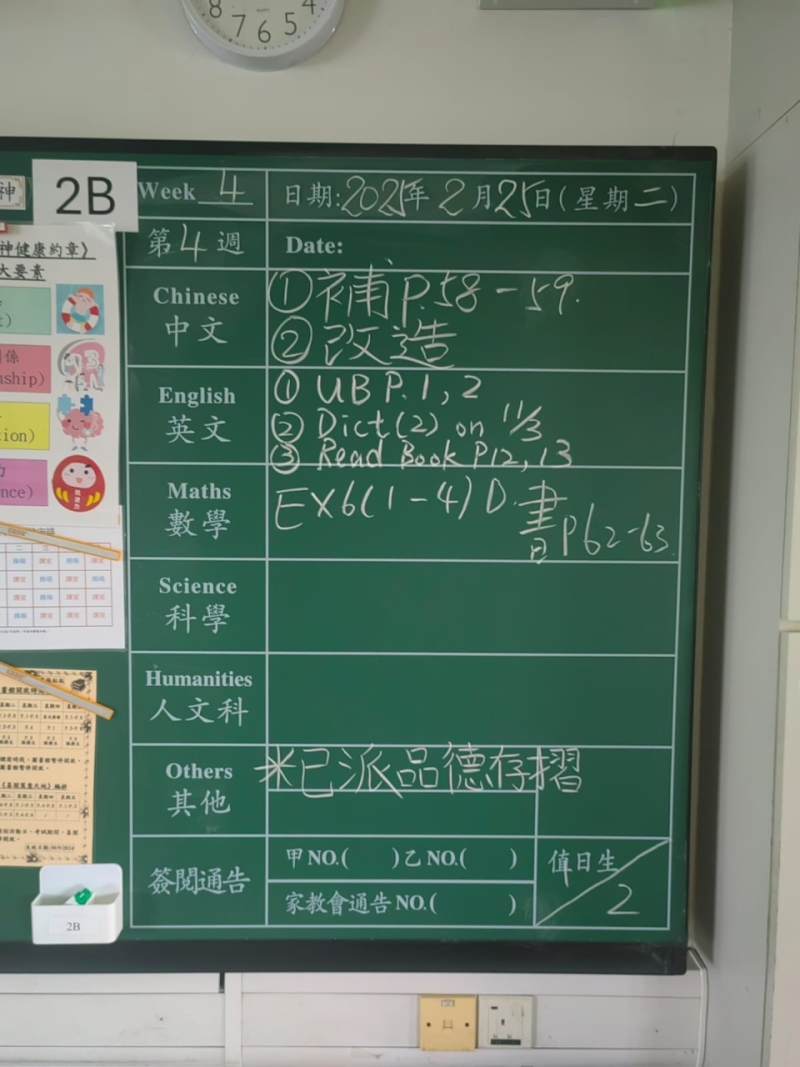 8 7 6 5 4
神
2B
Week 4
日期:2025年2月25日(星期二)
第4週
Date:
神健康約章》
大要素
Chinese
中文
①補P.58-59.
②改造
係
nship)
tion)
nce)
English
英文
① UB P.1, 2
② Dict(2) on 11/3
③ Read Book P12, 13
Maths
數學
EX6(1-4) D. 書P62-63
Science
科學
Humanities
人文科
Others
其他
*已派品德存摺
簽閱通告
甲NO.( )乙NO.( )
家教會通告NO.( )
值日生
2
2B